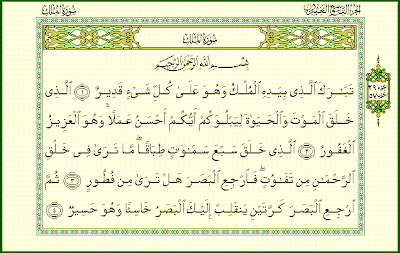 سورة الملك
الجزء التاسع والعشرون
سورة الملك
بسم الله الرحمن الرحيم
تَبَٰرَكَ ٱلَّذِى بِيَدِهِ ٱلْمُلْكُ وَهُوَ عَلَىٰ كُلِّ شَىْءٍ قَدِيرٌ ١ ٱلَّذِى
خَلَقَ ٱلْمَوْتَ وَٱلْحَيَوٰةَ لِيَبْلُوَكُمْ أَيُّكُمْ أَحْسَنُ عَمَلًا ۚ وَهُوَ ٱلْعَزِيزُ
ٱلْغَفُورُ ٢ ٱلَّذِى خَلَقَ سَبْعَ سَمَٰوَٰتٍ طِبَاقًا ۖ مَّا تَرَىٰ فِى خَلْقِ
ٱلرَّحْمَٰنِ مِن تَفَٰوُتٍ ۖ فَٱرْجِعِ ٱلْبَصَرَ هَلْ تَرَىٰ مِن فُطُورٍ ٣ ثُمَّ
ٱرْجِعِ ٱلْبَصَرَ كَرَّتَيْنِ يَنقَلِبْ إِلَيْكَ ٱلْبَصَرُ خَاسِئًا وَهُوَ حَسِيرٌ ٤